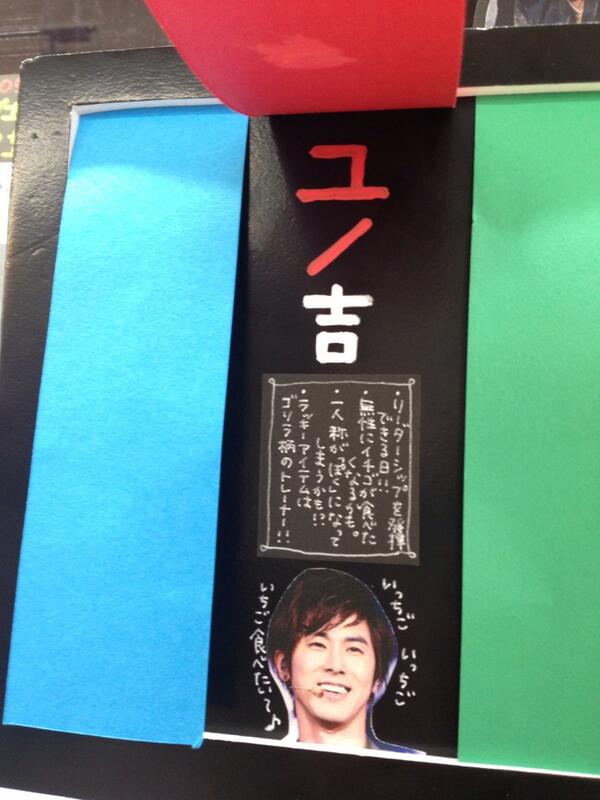 ユノ吉
・リーダーシップを発揮
できる日!!
・無性にイチゴが食べた
くなるかも。
・一人称が「ぼく」になって
しまうかも!?
・ラッキーアイテムは
ゴリラ柄のトレーナー!!
いっちご
いっちご
いちご食べたいて♪